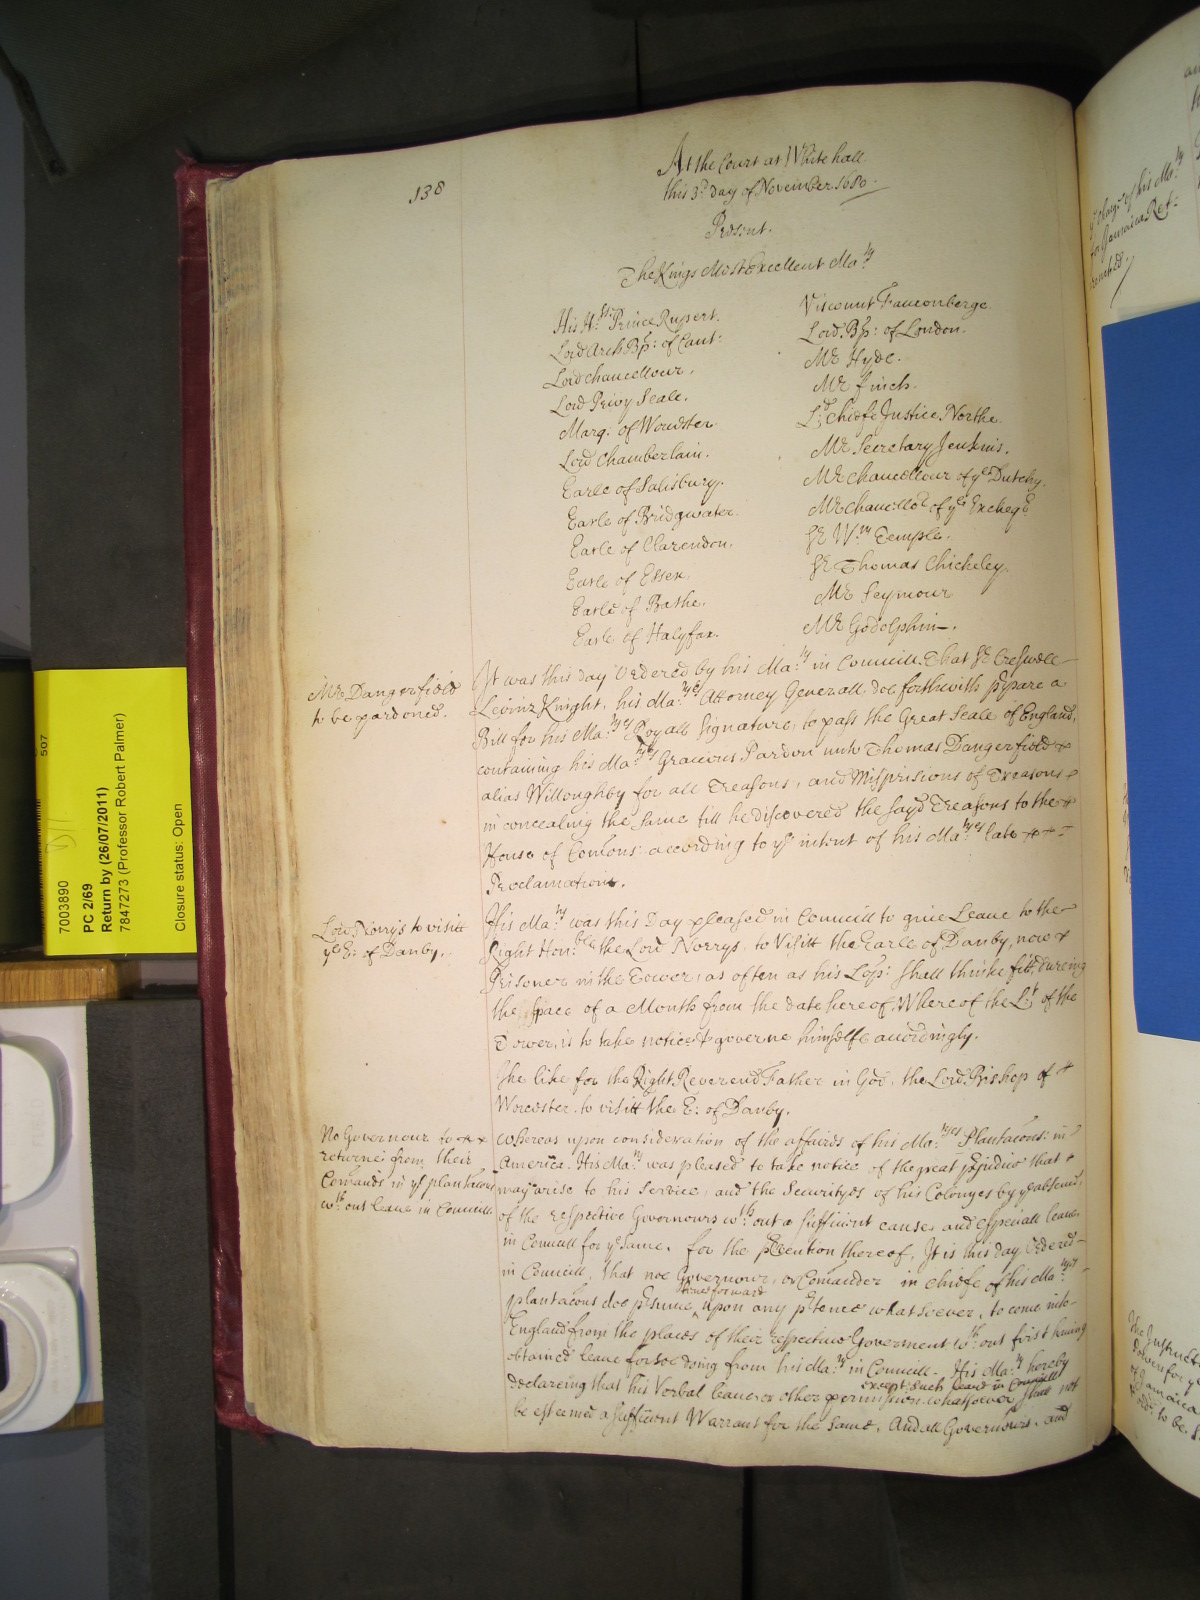 138
At the Court at Whitehall
this 3d. day of November 1680.
Present.
The Kings Most Excellent Ma:ty
His H:ss Prince Rupert.
Lord ArchBp: of Cant:
Lord Chancellour.
Lord Privy Seale.
Marq: of Worcester
Lord Chamberlain.
Earle of Salisbury.
Earle of Bridgwater.
Earle of Clarendon.
Earle of Essex.
Earle of Bathe.
Earle of Halyfax.
Viscount Fauconberge.
Lord Bp: of London.
Mr Hyde.
Mr Finch.
Ld: Chiefe Justice Northe.
Mr Secretary Jenkins.
Mr Chancellour of ye Dutchy.
Mr Chancellor of ye Excheqr
Sr Wm Temple.
Sr Thomas Chicheley.
Mr Seymour
Mr Godolphin.
Mr Dangerfield
to be pardoned.
It was this day Ordered by his Ma:ty in Councill. That Sr Creswell
Levinz Knight, his Ma:tyes Attorney Generall, doe forthwith prepare a
Bill for his Ma:tyes Royall Signature, to pass the Great Seale of England,
containing his Ma:tyes Gracious Pardon unto Thomas Dangerfield
alias Willoughby for all Treasons, and Misprisions of Treasons
in concealing the same till he discovered the sayd Treasons to the
House of Com̃ons: according to ye intent of his Ma:tyes late
Proclamations.
Lord Norrys to visitt
ye E: of Danby.
His Ma:ty was this Day pleased in Councill to give Leave to the
Right Hon:ble the Lord Norrys, to Visitt the Earle of Danby, now
Prisoner in the Tower, as often as his Lopp: shall thinke fitt, dureing
the space of a Month from the date hereof, Whereof the L:t of the
Tower, is to take notice & governe himselfe accordingly.
The like for the Right Reverend Father in God, the Lord Bishop of
Worcester, to visitt the E: of Danby.
No Governour to
returne from their
Com̃ands in ye plantac̃ons
wth: out leave in Councill
Whereas upon consideration of the affaires of his Ma:tyes Plantac̃ons: in
America. His Ma:ty was pleased to take notice of the great prejudice that
may arise to his Service, and the Securityes of his Colonyes by ye absence,
of the respective Governours wth: out a sufficient cause, and especiall leave
in Councill for ye same, for the prevention thereof, It is this day Ordered
in Councill, that noe Governour, or Com̃ander in chiefe of his Ma:tyes
time forward
plantac̃ons doe presume, ‸upon any pretence whatsoever, to come into
England from the places of their respective Government wth: out first having
obtained leave for soe doing from his Ma:ty in Councill. His Ma:ty hereby
except such leave in Councill
declareing that his Verbal leave or other permission whatsoever shall not
be esteemed a sufficient Warrant for the same. And all Governours, and
ye charge of his Ma:ty
for Jamaica Ref-
The Instruct
of Jamaica
to be
7003890
PC 2/69
Return by (26/07/2011)
7847273 (Professor Robert Palmer)
Closure status: Open
507